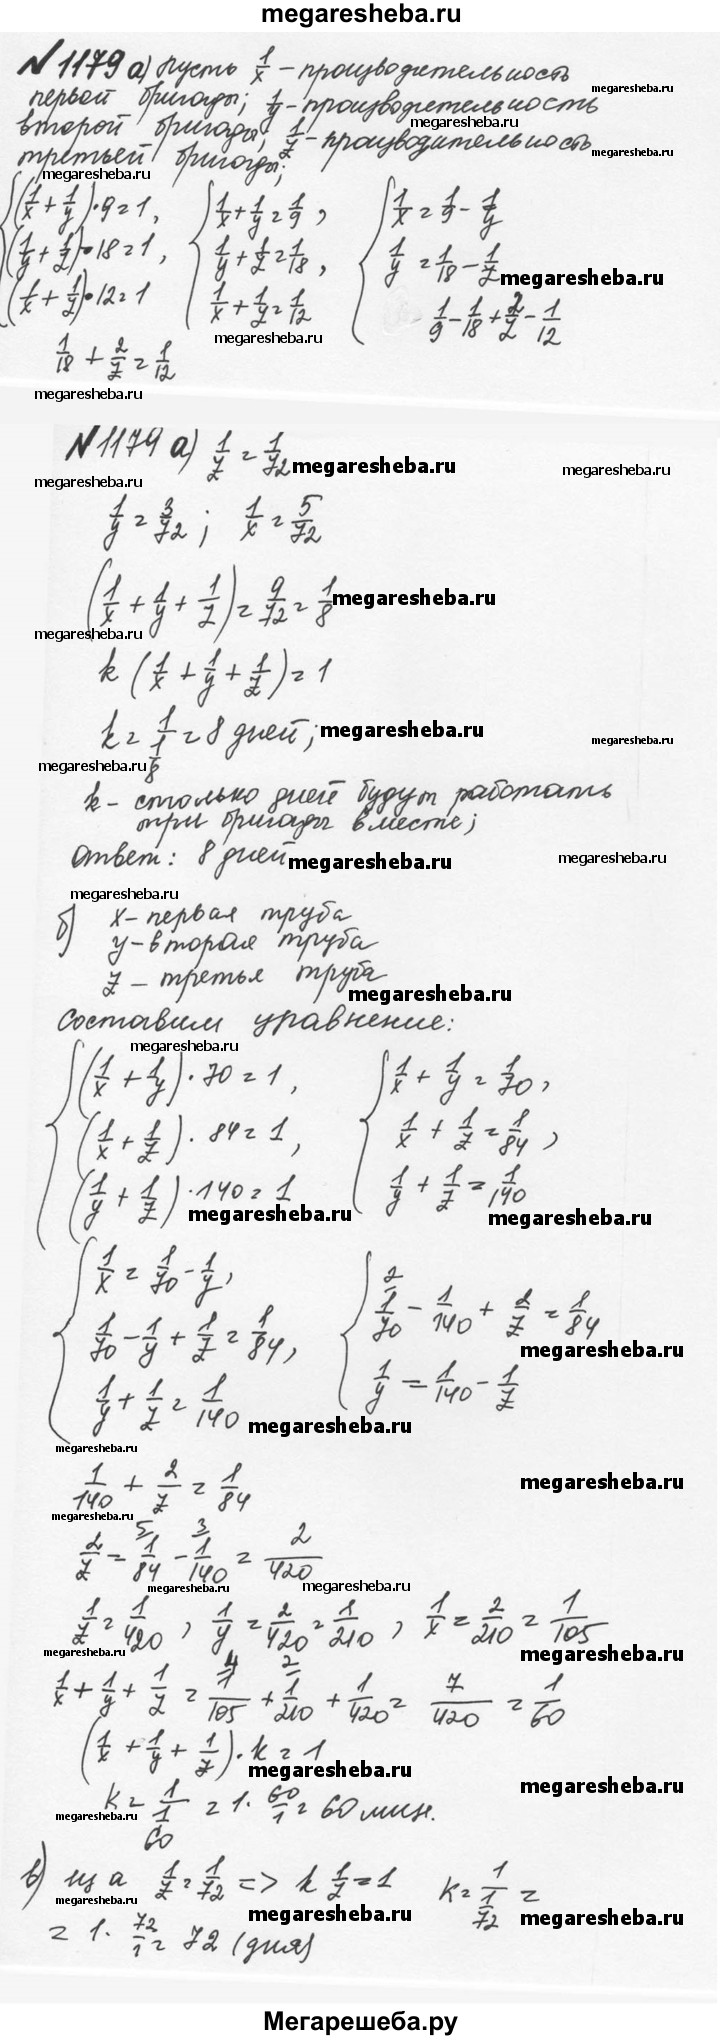 megaresheba.ru
N 1179 а) пусть 1/x - производительность
первой бригады; 1/y - производительность
megaresheba.ru
второй бригады, 1/z - производительность
megaresheba.ru
третьей бригады;
megaresheba.ru
(1/x + 1/y)•9=1, 1/x + 1/y = 1/9, 1/x = 1/9 - 1/y
(1/y + 1/z)•18=1, 1/y + 1/z = 1/18, 1/y = 1/18 - 1/z
megaresheba.ru
(1/x + 1/z)•12=1 1/x + 1/y = 1/12 1/9 - 1/18 + 2/z - 1/12
megaresheba.ru
1/18 + 2/z = 1/12
megaresheba.ru
N 1179 а) 1/z = 1/72
megaresheba.ru
megaresheba.ru
megaresheba.ru
1/y = 3/72; 1/x = 5/72
(1/x + 1/y + 1/z) = 9/72 = 1/8
megaresheba.ru
megaresheba.ru
k (1/x + 1/y + 1/z) = 1
k = 1/(1/8) = 8 дней;
megaresheba.ru
megaresheba.ru
megaresheba.ru
k - столько дней будут работать
три бригады вместе;
Ответ: 8 дней
megaresheba.ru
megaresheba.ru
megaresheba.ru
б) x - первая труба
y - вторая труба
z - третья труба
megaresheba.ru
Составим уравнение:
megaresheba.ru
(1/x + 1/y)•70=1, 1/x + 1/y = 1/70,
(1/x + 1/z)•84=1, 1/x + 1/z = 1/84,
(1/y + 1/z)•140=1 1/y + 1/z = 1/140
megaresheba.ru
megaresheba.ru
1/x = 1/70 - 1/y, 2
1/70 - 1/140 + 2/z = 1/84
1/70 - 1/y + 1/z = 1/84,
megaresheba.ru
1/y + 1/z = 1/140 1/y = 1/140 - 1/z
megaresheba.ru
megaresheba.ru
1/140 + 2/z = 1/84
megaresheba.ru
megaresheba.ru
5 3
2/z = 1/84 - 1/140 = 2/420
megaresheba.ru
megaresheba.ru
1/z = 1/420, 1/y = 2/420 = 1/210, 1/x = 2/210 = 1/105
megaresheba.ru
megaresheba.ru
4 2
1/x + 1/y + 1/z = 1/105 + 1/210 + 1/420 = 7/420 = 1/60
(1/x + 1/y + 1/z)•k=1
megaresheba.ru
megaresheba.ru
k = 1/(1/60) = 1•60/1 = 60 мин.
megaresheba.ru
в) из а 1/z = 1/72 => k 1/z = 1 k = 1/(1/72) =
megaresheba.ru
megaresheba.ru
megaresheba.ru
= 1•72/1 = 72 (дня)
Мегарешеба.ру